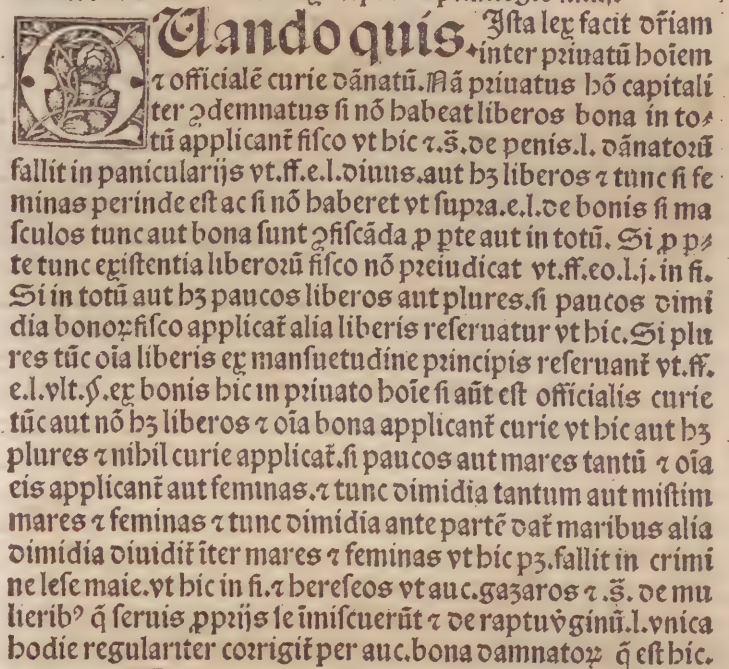 QUando quis. Ista lex facit dr̃iam
inter priuatũ hoiem
⁊ officialẽ curie dãnatũ. Nã priuatus hõ capitali
ter ꝯdemnatus si nõ habeat liberos bona in to⸗
tũ applicant̃ fisco vt hic ⁊.s̃. de penis.l. dãnatorũ
fallit in panicularijs vt.ff.e.l.diuus.aut hꝫ liberos ⁊ tunc si fe
minas perinde est ac si nõ haberet vt supra.e.l.de bonis si ma
sculos tunc aut bona sunt ꝯfiscãda ꝓ ꝑte aut in totũ. Si ꝓ ꝑ⸗
te tunc existentia liberorũ fisco nõ preiudicat vt.ff.eo.l.j. in fi.
Si in totũ aut hꝫ paucos liberos aut plures.si paucos dimi
dia bonoꝝ fisco applicat̃ alia liberis reseruatur vt hic. Si plu
res tũc oĩa liberis ex mansuetudine principis reseruant̃ vt.ff.
e.l.vlt.§.ex bonis hic in priuato hoĩe si aũt est officialis curie
tũc aut nõ hꝫ liberos ⁊ oĩa bona applicant̃ curie vt hic aut hꝫ
plures ⁊ nihil curie applicat̃.si paucos aut mares tantũ ⁊ oĩa
eis applicant̃ aut feminas.⁊ tunc dimidia tantum aut mistim
mares ⁊ feminas ⁊ tunc dimidia ante partẽ dat̃ maribus alia
dimidia diuidit̃ ĩter mares ⁊ feminas vt hic pꝫ.fallit in crimi
ne lese maie.vt hic in fi.⁊ hereseos vt auc.gazaros ⁊.s̃. de mu
lieribꝰ q̃ seruis ꝓprijs se ĩmiscuerũt ⁊ de raptu v̓ginũ.l.vnica
hodie regulariter corrigit̃ per auc.bona damnatoꝝ q̃ est hic.